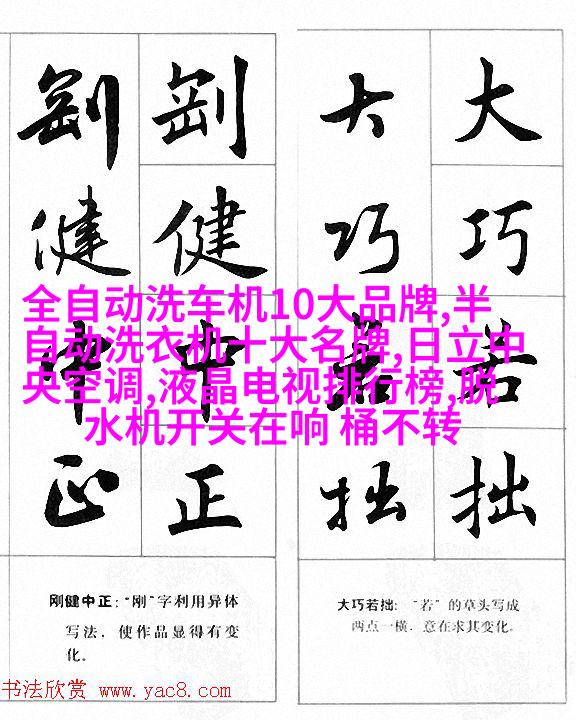 剛 剛 大 大
健 健 巧 巧
中 中 若 若
正 正 拙 拙
全自动洗车机10大品牌,半
自动洗衣机十大名牌,日立中
央空调,液晶电视排行榜,脱
水机开关在响 桶不转
刚健中正:“刚”字利用异体
写法,使作品显得有变
化。
大巧若拙:“若”的草头写成
两点一横,意在求其变化。
书法欣赏 www.yac8.com